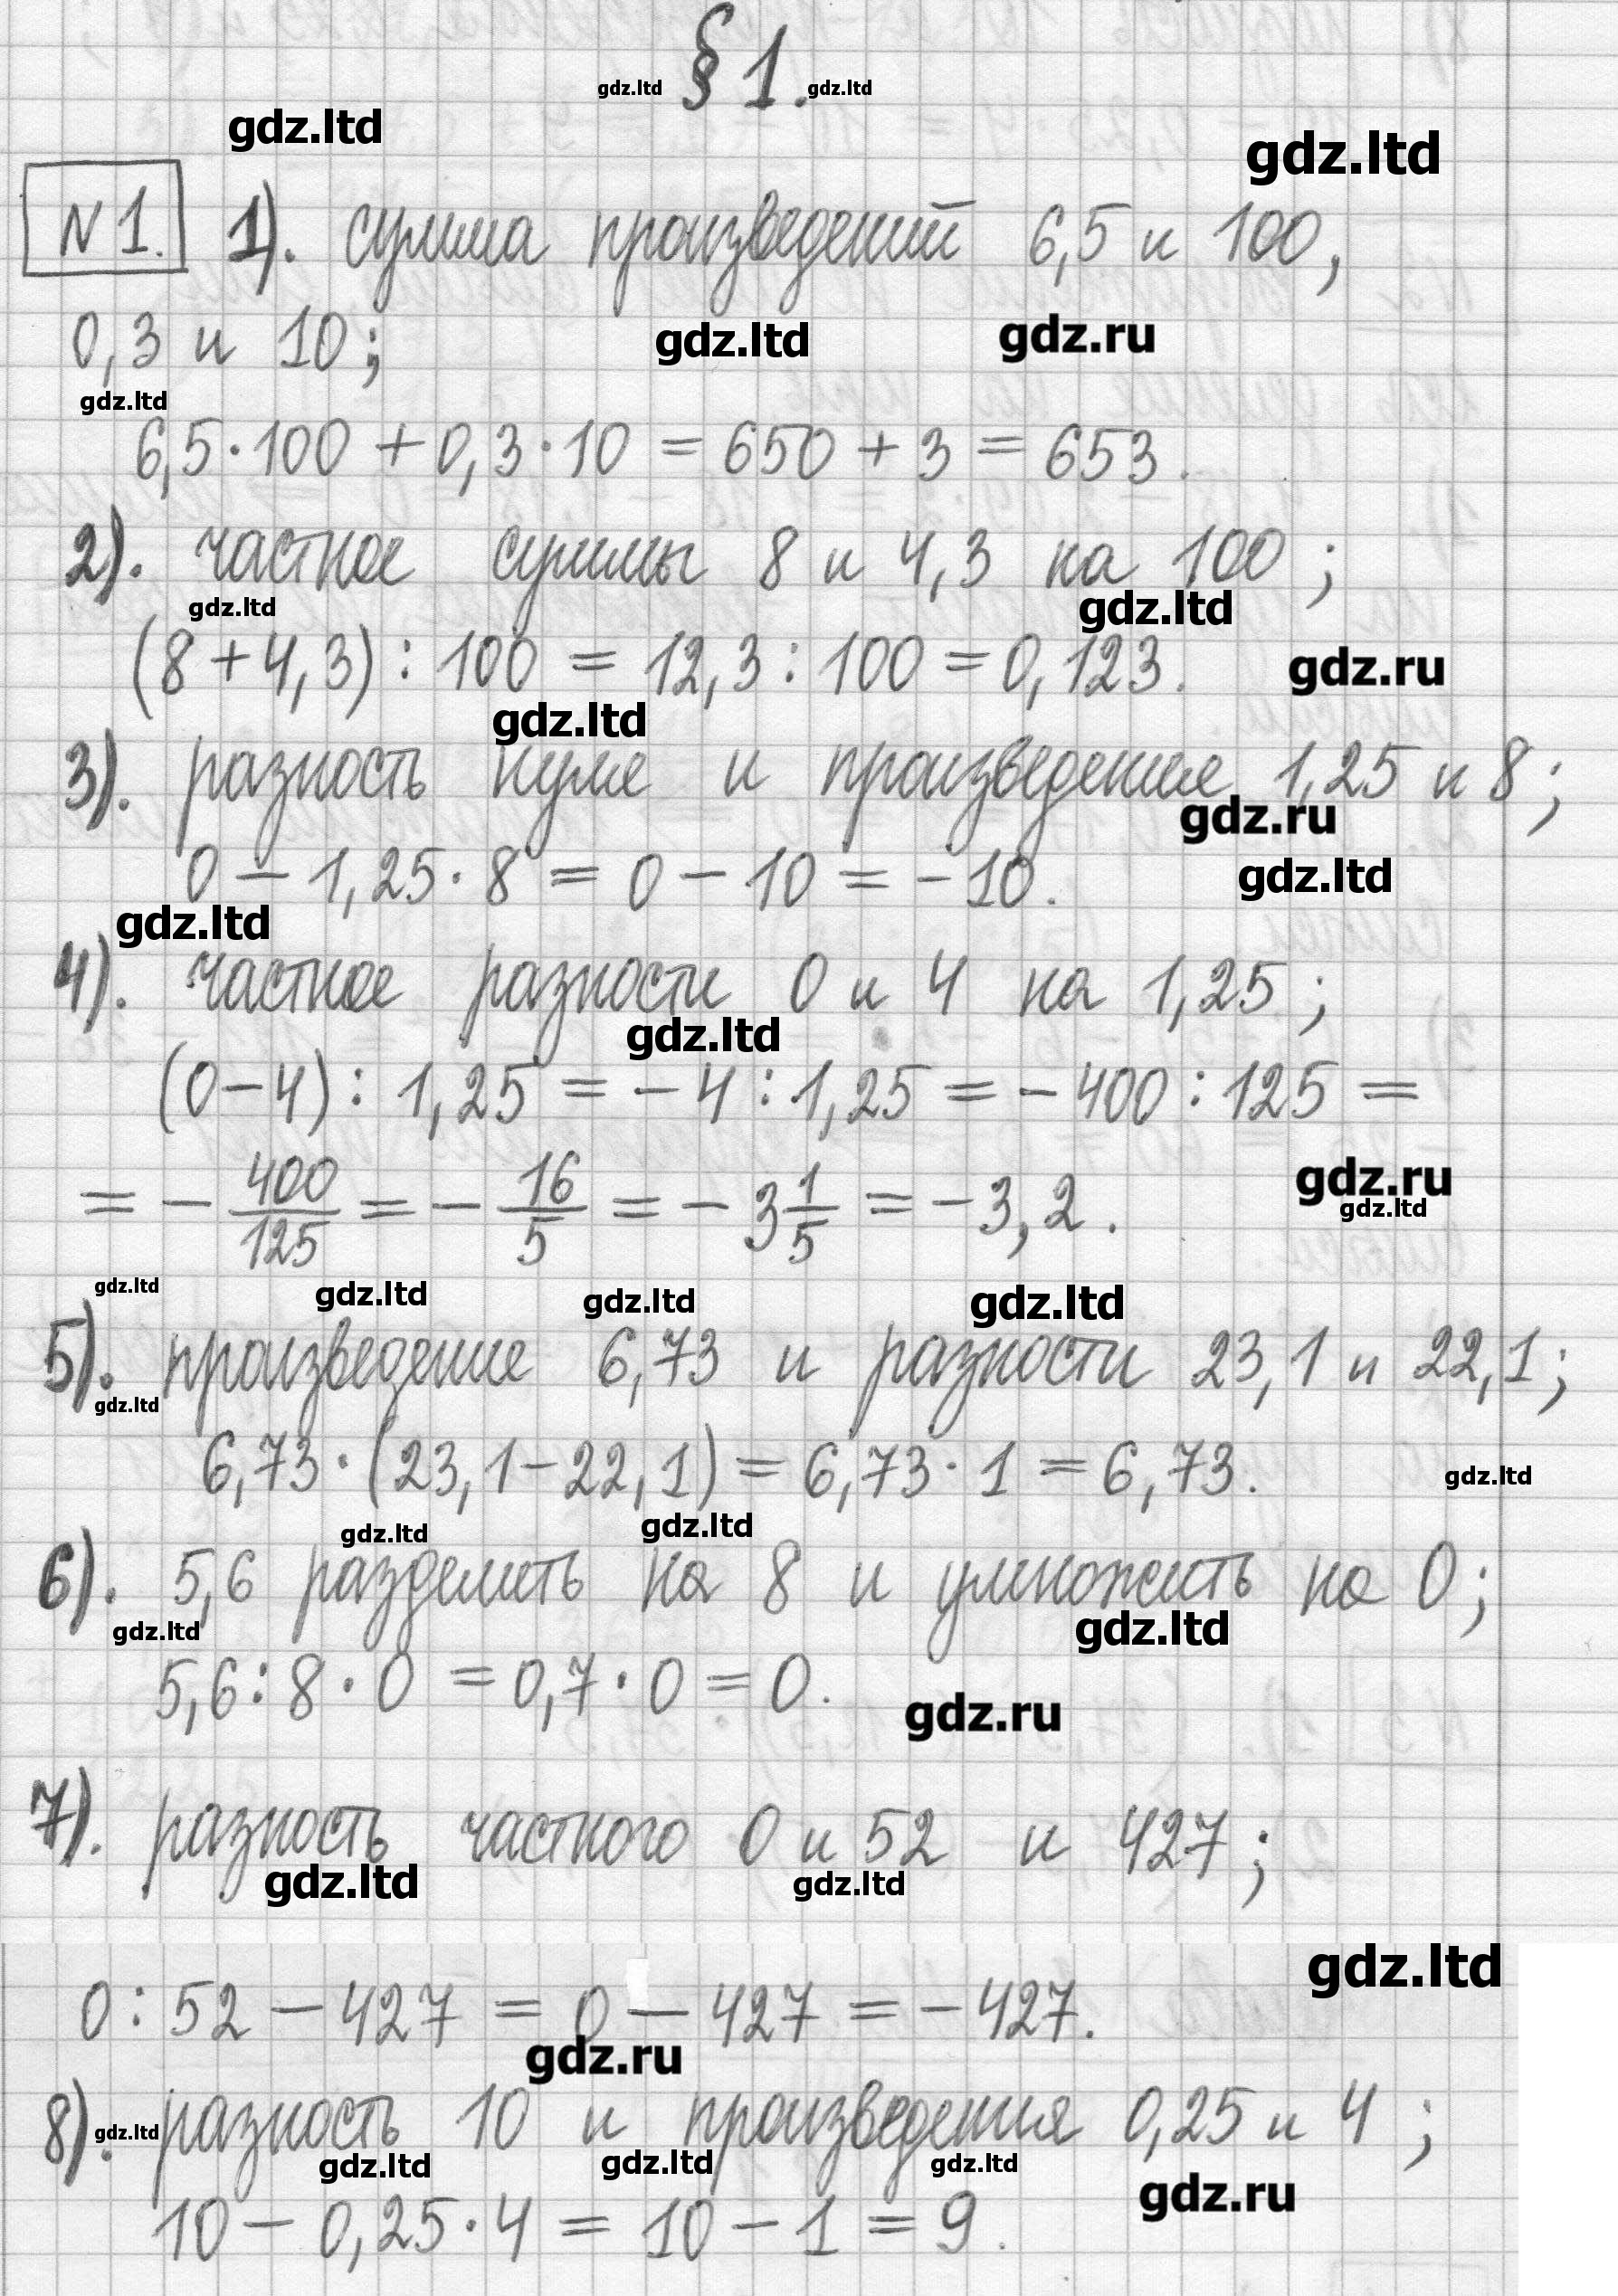 § 1.
gdz.ltd gdz.ltd
gdz.ltd
gdz.ltd
N 1. 1). сумма произведений 6,5 и 100,
0,3 и 10;
gdz.ltd gdz.ru
gdz.ltd
6,5·100 + 0,3·10 = 650 + 3 = 653.
2). частное суммы 8 и 4,3 на 100;
gdz.ltd gdz.ltd
(8+4,3):100 = 12,3:100 = 0,123.
gdz.ru
gdz.ltd
3). разность нуля и произведения 1,25 и 8;
gdz.ru
0 − 1,25·8 = 0 − 10 = −10.
gdz.ltd
gdz.ltd
4). частное разности 0 и 4 на 1,25;
gdz.ltd
(0−4): 1,25 = −4:1,25 = −400:125 =
= − 400/125 = − 16/5 = − 3 1/5 = −3,2.
gdz.ru
gdz.ltd
gdz.ltd gdz.ltd gdz.ltd gdz.ltd
5). произведение 6,73 и разности 23,1 и 22,1;
gdz.ltd
6,73·(23,1−22,1) = 6,73·1 = 6,73.
gdz.ltd
gdz.ltd gdz.ltd
6). 5,6 разделить на 8 и умножить на 0;
gdz.ltd gdz.ltd
5,6:8·0 = 0,7·0 = 0.
gdz.ru
7). разность частного 0 и 52 и 427;
gdz.ltd gdz.ltd
gdz.ltd
0:52 − 427 = 0 − 427 = −427.
gdz.ru
8). разность 10 и произведения 0,25 и 4;
gdz.ltd
gdz.ltd gdz.ltd gdz.ltd
gdz.ru
10 − 0,25·4 = 10 − 1 = 9.